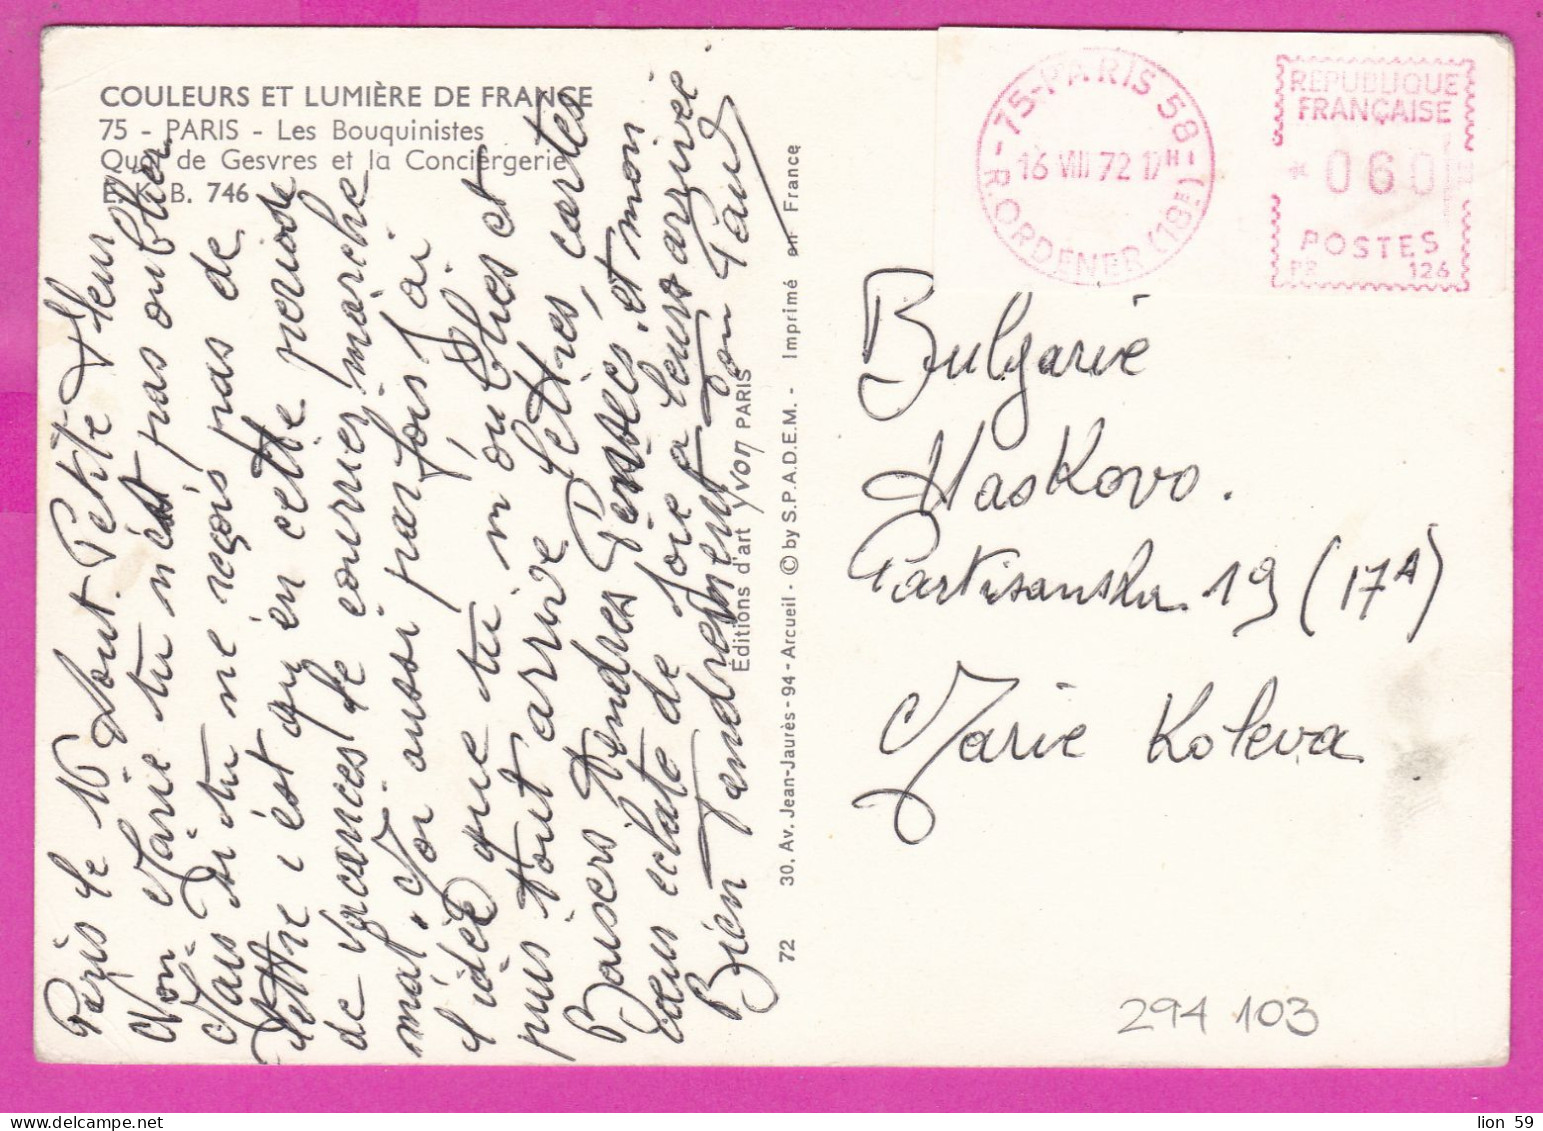 COULEURS ET LUMIÈRE DE FRANCE
75 - PARIS - Les Bouquinistes
Quai de Gesvres et la Conciergerie
E. K. B. 746
Paris le 16 Aout. Petite fleur
Non Marie tu n'est pas oublier
Mais si tu ne reçois pas de
lettre c'est qu'en cette periode
de vacances le courrier marche
mal. Moi aussi par fois j'ai
l'idée que tu m'oublies et
puis tout arrive lettres, cartes
Baisers tendres Pensees, et mon
cœur eclate de Joie a leurs arrivée.
Bien Tendrement Ton Paul
Éditions d'art Yvon PARIS
72 30, Av. Jean-Jaurès - 94 - Arcueil - © by S.P.A.D.E.M. - Imprimé en France
75-PARIS 58
16 VIII 72 17H
R. ORDENER (18E)
RÉPUBLIQUE
FRANÇAISE
060
POSTES
126
Bulgarie
Haskovo.
Partisanska 19 (17A)
Marie Koleva
294 103
lion 59